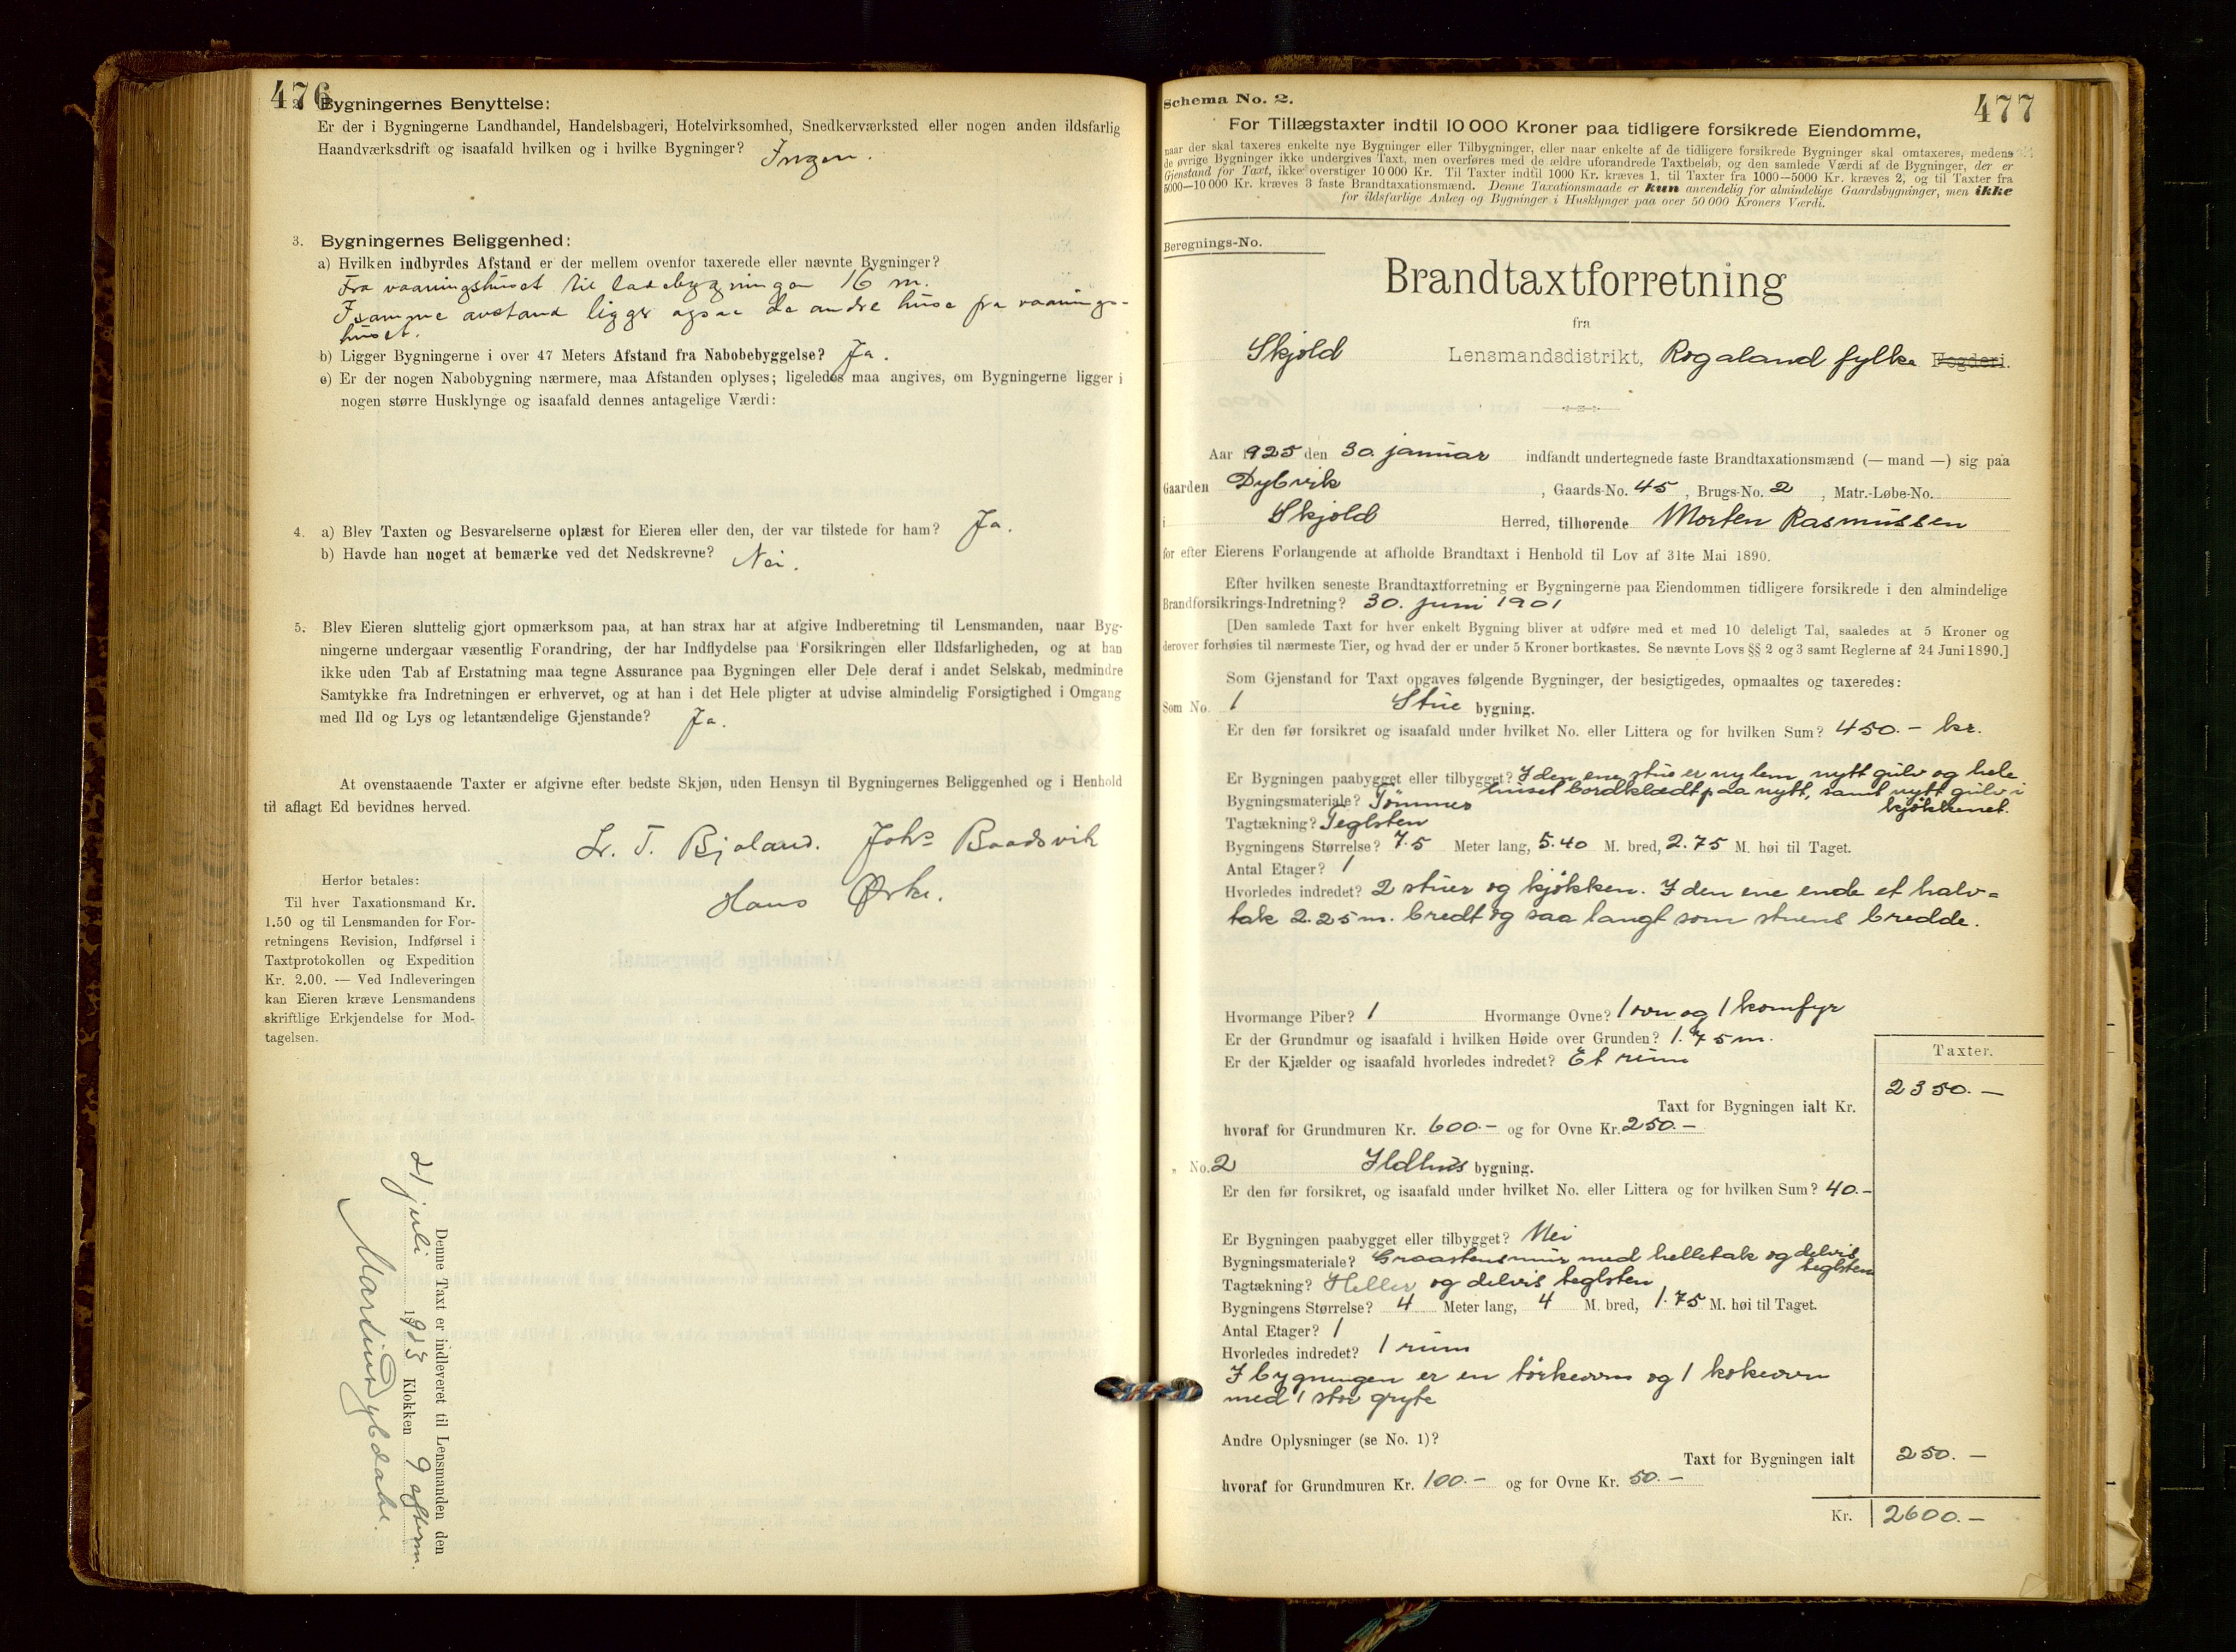 476
2. Bygningernes Benyttelse:
Er der i Bygningerne Landhandel, Handelsbageri, Hotelvirksomhed, Snedkerværksted eller nogen anden ildsfarlig
Haandværksdrift og isaafald hvilken og i hvilke Bygninger? Ingen.
3. Bygningernes Beliggenhed:
a) Hvilken indbyrdes Afstand er der mellem ovenfor taxerede eller nævnte Bygninger?
Fra vaaningshuset til ladebygningen 16 m.
I samme avstand ligger ogsaa de andre huse fra vaanings-
huset.
b) Ligger Bygningerne i over 47 Meters Afstand fra Nabobebyggelse? Ja.
c) Er der nogen Nabobygning nærmere, maa Afstanden oplyses; ligeledes maa angives, om Bygningerne ligger i
nogen større Husklynge og isaafald dennes antagelige Værdi:
4. a) Blev Taxten og Besvarelserne oplæst for Eieren eller den, der var tilstede for ham? Ja.
b) Havde han noget at bemærke ved det Nedskrevne? Nei.
5. Blev Eieren sluttelig gjort opmærksom paa, at han strax har at afgive Indberetning til Lensmanden, naar Byg-
ningerne undergaar væsentlig Forandring, der har Indflydelse paa Forsikringen eller Ildsfarligheden, og at han
ikke uden Tab af Erstatning maa tegne Assurance paa Bygningen eller Dele deraf i andet Selskab, medmindre
Samtykke fra Indretningen er erhvervet, og at han i det Hele pligter at udvise almindelig Forsigtighed i Omgang
med Ild og Lys og letantændelige Gjenstande? Ja.
At ovenstaaende Taxter er afgivne efter bedste Skjøn, uden Hensyn til Bygningernes Beliggenhed og i Henhold
til aflagt Ed bevidnes herved.
L. T. Bjoland. Johs Baadsvik
Hans Ørke.
Herfor betales:
Til hver Taxationsmand Kr.
1.50 og til Lensmanden for For-
retningens Revision, Indførsel i
Taxtprotokollen og Expedition
Kr. 2.00. — Ved Indleveringen
kan Eieren kræve Lensmandens
skriftlige Erkjendelse for Mod-
tagelsen.
Denne Taxt er indleveret til Lensmanden den
21 juli 1925 Klokken 9 efterm.
477
Schema No. 2.
For Tillægstaxter indtil 10 000 Kroner paa tidligere forsikrede Eiendomme,
naar der skal taxeres enkelte nye Bygninger eller Tilbygninger, eller naar enkelte af de tidligere forsikrede Bygninger skal omtaxeres, medens
de øvrige Bygninger ikke undergives Taxt, men overføres med de ældre uforandrede Taxtbeløb, og den samlede Værdi af de Bygninger, der er
Gjenstand for Taxt, ikke overstiger 10 000 Kr. Til Taxter indtil 1000 Kr. kræves 1, til Taxter fra 1000—5000 Kr. kræves 2, og til Taxter fra
5000—10 000 Kr. kræves 3 faste Brandtaxationsmænd. Denne Taxationsmaade er kun anvendelig for almindelige Gaardsbygninger, men ikke
for ildsfarlige Anlæg og Bygninger i Husklynger paa over 50 000 Kroners Værdi.
Beregnings-No.
Brandtaxtforretning
fra
Skjold Lensmandsdistrikt, Rogaland fylke Fogderi.
Aar 1925 den 30. januar indfandt undertegnede faste Brandtaxationsmænd (— mand —) sig paa
Gaarden Dybvik, Gaards-No. 45, Brugs-No. 2, Matr.-Løbe-No.
i Skjold Herred, tilhørende Morten Rasmussen
for efter Eierens Forlangende at afholde Brandtaxt i Henhold til Lov af 31te Mai 1890.
Efter hvilken seneste Brandtaxtforretning er Bygningerne paa Eiendommen tidligere forsikrede i den almindelige
Brandforsikrings-Indretning? 30. juni 1901
[Den samlede Taxt for hver enkelt Bygning bliver at udføre med et med 10 deleligt Tal, saaledes at 5 Kroner og
derover forhøies til nærmeste Tier, og hvad der er under 5 Kroner bortkastes. Se nævnte Lovs §§ 2 og 3 samt Reglerne af 24 Juni 1890.]
Som Gjenstand for Taxt opgaves følgende Bygninger, der besigtigedes, opmaaltes og taxeredes:
Som No. 1 Stue bygning.
Er den før forsikret og isaafald under hvilket No. eller Littera og for hvilken Sum? 450.- kr.
Er Bygningen paabygget eller tilbygget? I den ene stue er ny lem, nytt gulv og hele
huset bordklædt paa nytt, samt nytt gulv i
kjøkkenet.
Bygningsmateriale? Tømmer
Tagtækning? Teglsten
Bygningens Størrelse? 7.5 Meter lang, 5.40 M. bred, 2.75 M. høi til Taget.
Antal Etager? 1
Hvorledes indredet? 2 stuer og kjøkken. I den ene ende et halv=
tak 2.25 m. bredt og saa langt som stuens bredde.
Hvormange Piber? 1 Hvormange Ovne? 1 ovn og 1 komfyr
Er der Grundmur og isaafald i hvilken Høide over Grunden? 1.75 m.
Er der Kjælder og isaafald hvorledes indredet? Et rum
Taxter.
Taxt for Bygningen ialt Kr. 2350.—
hvoraf for Grundmuren Kr. 600.- og for Ovne Kr. 250.—
„ No. 2 Ildhus bygning.
Er den før forsikret, og isaafald under hvilket No. eller Littera og for hvilken Sum? 40.-
Er Bygningen paabygget eller tilbygget? Nei
Bygningsmateriale? Graastensmur med helletak og delvis
teglsten
Tagtækning? Heller og delvis teglsten
Bygningens Størrelse? 4 Meter lang, 4 M. bred, 1.75 M. høi til Taget.
Antal Etager? 1
Hvorledes indredet? 1 rum
I bygningen er en tørkeovn og 1 kokeovn
med 1 stor gryte
Andre Oplysninger (se No. 1)?
Taxt for Bygningen ialt 250.—
hvoraf for Grundmuren Kr. 100.- og for Ovne Kr. 50.—
Kr. 2600.—